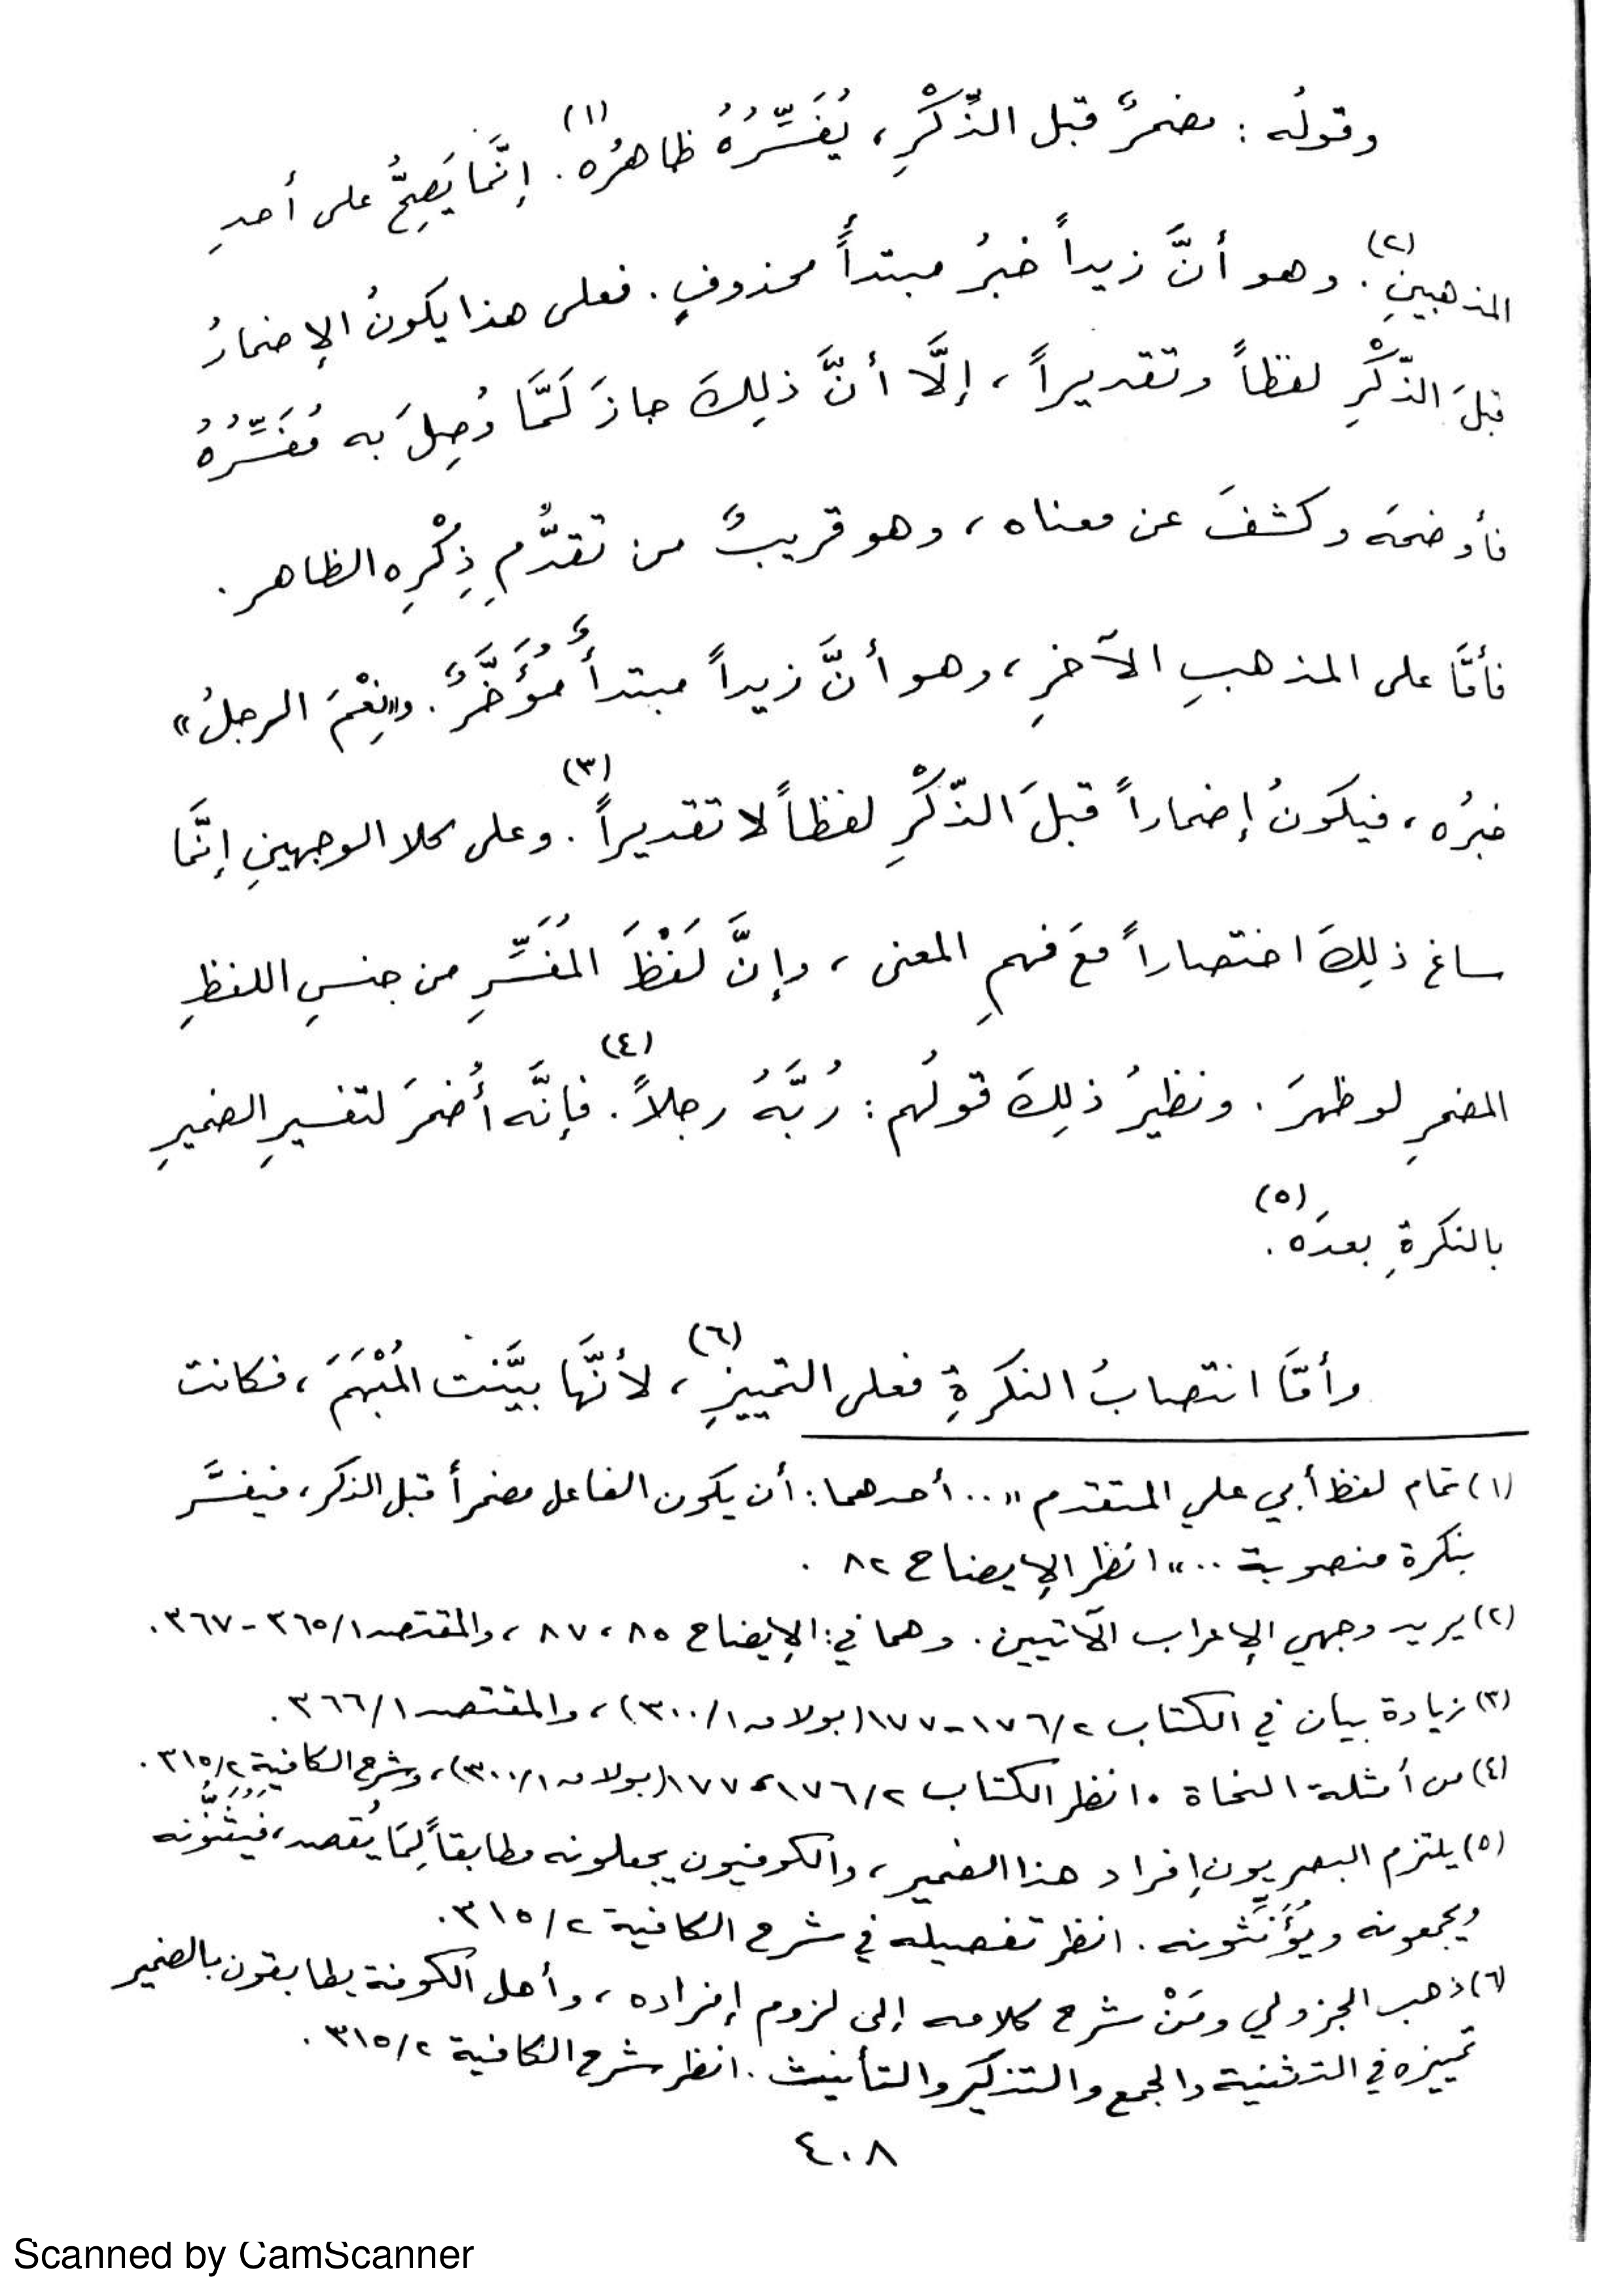 وقولُه : مضمرٌ قبل الذِّكْرِ ، يُفَسِّرُهُ ظاهرُه(١). إنَّما يَصِحُّ على أحدِ
المذهبينِ(٢). وهو أنَّ زيداً خبرُ مبتدأٍ محذوفٍ . فعلى هذا يكونُ الإضمارُ
قبلَ الذّكْرِ لفظاً وتقديراً ، إلَّا أنَّ ذلِكَ جازَ لَمَّا وُصِلَ به مُفَسِّرُهُ
فأوضحَه وكشفَ عن معناه ، وهو قريبٌ من تقدُّمِ ذِكْرِه الظاهر .
فأمَّا على المذهبِ الآخرِ ، وهو أنَّ زيداً مبتدأٌ مُؤَخَّرٌ . و«نِعْمَ الرجلُ»
خبرُه ، فيكونُ إضماراً قبلَ الذّكْرِ لفظاً لا تقديراً(٣). وعلى كلا الوجهينِ إنَّما
ساغ ذلِكَ اختصاراً معَ فهمِ المعنى ، وإنَّ لَفْظَ المُفَسِّرِ من جنسِ اللفظِ
المضمرِ لو ظهرَ . ونظيرُ ذلِكَ قولُهم : رُبَّهُ رجلاً(٤). فإنَّه أُضمرَ لتفسيرِ الضميرِ
بالنكرةِ بعدَه(٥).
وأمَّا انتصابُ النكرةِ فعلى التمييزِ(٦)، لأنَّها بيَّنت المُبْهَمَ ، فكانت
(١) تمام لفظ أبي علي المتقدم «.. أحدهما : أن يكون الفاعل مضمراً قبل الذكر ، فيفسَّر
بنكرة منصوبة ..» انظر الإيضاح ٨٢ .
(٢) يريد وجهي الإعراب الآتيين . وهما في : الإيضاح ٨٥ ، ٨٧ ، والمقتصد ٣٦٥/١-٣٦٧.
(٣) زيادة بيان في الكتاب ١٧٦/٢-١٧٧ (بولاق ٣٠٠/١) ، والمقتصد ٣٦٦/١.
(٤) من أمثلة النحاة . انظر الكتاب ١٧٦/٢ ، ١٧٧ (بولاق ٣٠٠/١) ، وشرح الكافية ٣١٥/٢.
(٥) يلتزم البصريون إفراد هذا الضمير ، والكوفيون يجعلونه مطابقاً لِمَا يُقصد ، فيُثَنُّونه
ويجمعونه ويُؤَنِّثونه . انظر تفصيله في شرح الكافية ٣١٥/٢.
(٦) ذهب الجزولي ومَنْ شرح كلامه إلى لزوم إفراده ، وأهل الكوفة يطابقون بالضمير
تمييزه في التثنية والجمع والتذكير والتأنيث . انظر شرح الكافية ٣١٥/٢ .
٤٠٨
Scanned by CamScanner